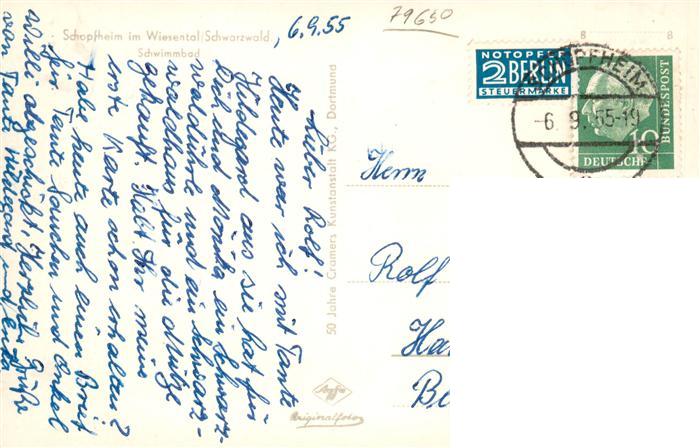 Schopfheim im Wiesental/Schwarzwald
Schwimmbad
6.9.55
79650
Lieber Rolf!
Heute war ich mit Tante
Hildegard aus sie hat für
Dich und Monika ein Schwarz-
waldührle und ein Schwarz-
waldhaus für die Mütze
gekauft. Habt Ihr meine
erste Karte schon erhalten?
Habe heute auch einen Brief
für Tante und Onkel
Willi abgeschickt, Herzliche Grüße
von Tante Hildegard und
50 Jahre Cramers Kunstanstalt KG., Dortmund
Agfa
Originalfoto
NOTOPFER
2 BERLIN
STEUERMARKE
8 8
PFHEIM
-6. 9. 55-19
10
DEUTSCHE
BUNDESPOST
Herrn
Rolf
Ha
Be